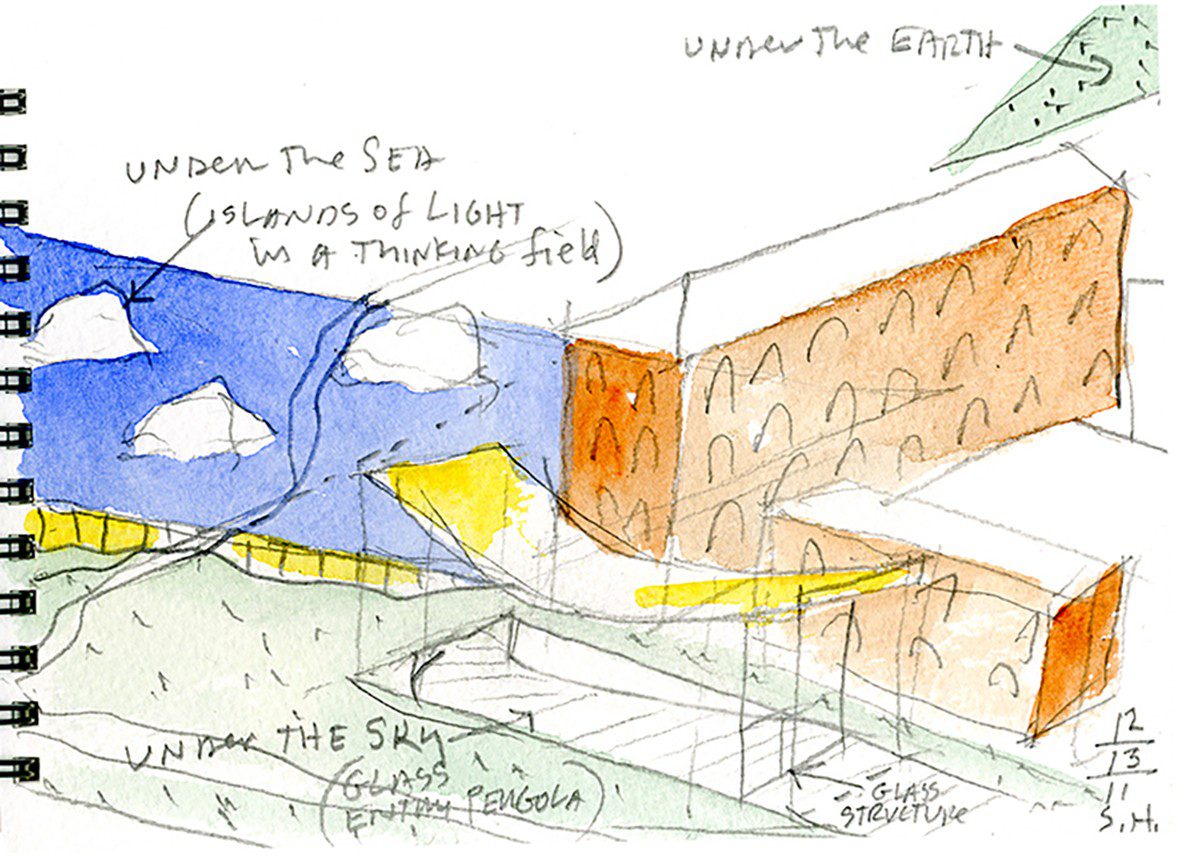 UNDER The EARTH
UNDER The SEA
(ISLANDS of LIGHT
IN A THINKING field)
UNDER THE SKY
(GLASS
ENTRY PERGOLA)
GLASS
STRUCTURE
12
13
11
S.H.